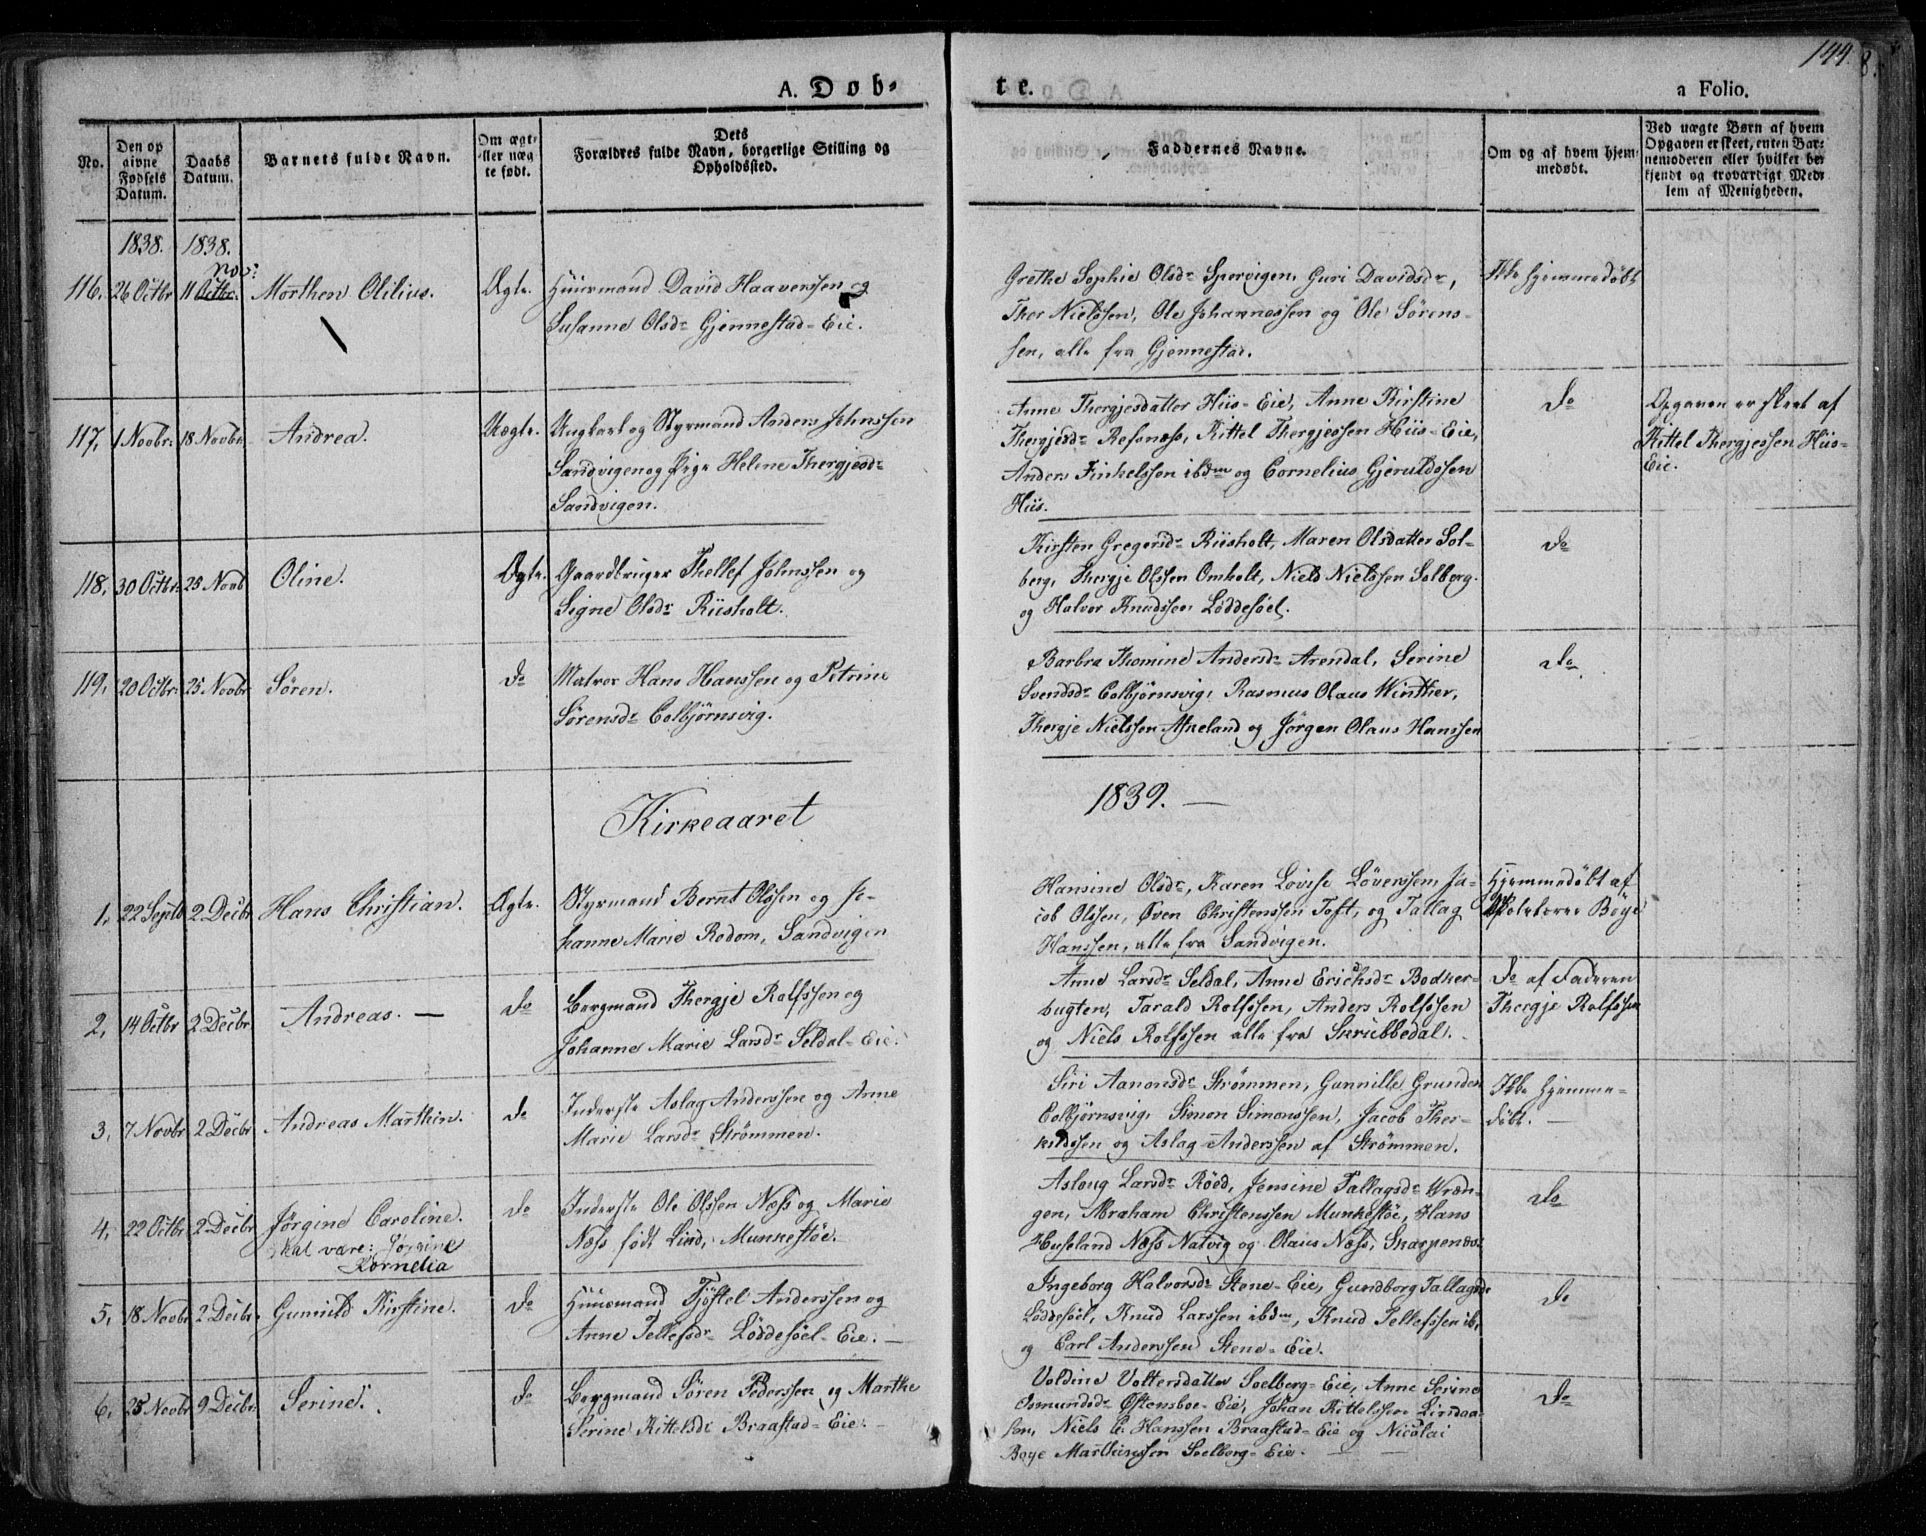 144.
A. Døb-
te.
a Folio.
No.
Den op
givne
Fødsels
Datum.
Daabs
Datum.
Barnets fulde Navn.
Om ægt-
eller uæg
te født.
Dets
Forældres fulde Navn, borgerlige Stilling og
Opholdssted.
Faddernes Navne.
Om og af hvem hjem-
medøbt.
Ved uægte Børn af hvem
Opgaven er skeet, enten Bar-
nemoderen eller hvilket be-
kjendt og troværdigt Med-
lem af Menigheden.
1838. 1838.
Nov:
116. 26 Octbr 11 Octbr. Morthen Olilius. Ægte. Huusmand David Haaverssen og
Susanne Olsdr Gjennestad-Eie.
Grethe Sophie Olsdr Spervigen, Guri Davidsdr,
Thor Nielssen, Ole Johannessen og Ole Sørens-
sen, alle fra Gjennestad.
Ikke hjemmedøbt
117. 1 Novbr. 18 Novbr. Andrea. Uægte. Ungkarl og Styrmand Anders Johnssen
Sandvigen og Pige Helene Thergjesdr
Sandvigen.
Anne Thergjesdatter Hiis-Eie, Anne Kirstine
Thergjesdr Refsnæs, Kittel Thergjessen Hiis-Eie,
Anders Finkelssen ibdm og Cornelius Gjeruldssen
Hiis.
Do
Opgaven er skeet af
Kittel Thergjessen Hiis-
Eie.
118. 30 Octbr. 25 Novb Oline. Ægte. Gaardbruger Thellef Johnssen og
Signe Olsdr Riisholt.
Kirsten Gregersdr Riisholt, Maren Olsdatter Sol-
berg, Thergje Olssen Omholt, Niels Nielssen Solberg
og Halvor Knudssen Løddesøel.
Do
119. 20 Octbr. 25 Novbr Søren. Do Matros Hans Hanssen og Petrine
Sørensdr Colbjørnsvig.
Barbra Thomine Andersdr Arendal, Serine
Svendsdr Colbjørnsvig, Rasmus Olaus Winther,
Thergje Nielssen Askeland og Jørgen Olaus Hanssen
Do
Kirkeaaret
1839. —
1. 22 Septb 2 Decbr Hans Christian. Ægte. Styrmand Bernt Olssen og Jo-
hanne Marie Rodom, Sandvigen
Hansine Olsdr, Karen Lovise Løverssen, Ja-
cob Olssen, Øven Christenssen Toft, og Tallag
Hanssen, alle fra Sandvigen.
Hjemmedøbt af
Skolelærer Bøye
2. 14 Octbr 2 Decbr. Andreas. — Do Bergmand Thergje Rolfssen og
Johanne Marie Larsdr Seldal-Eie.
Anne Larsdr Seldal, Anne Erichsdr Bodker-
bugten, Tarald Rolfssen, Anders Rolfssen
og Niels Rolfssen alle fra Skrubbedal.
Do af Faderen
Thergje Rolfssen
3. 7 Novbr 2 Decbr Andreas Marthin. Do Inderste Aslag Anderssen og Anne
Marie Larsdr Strømmen.
Siri Aanonsdr Strømmen, Gunnille Grunden
Colbjørnsvig, Simon Simonssen, Jacob Ther-
kildssen og Aslag Anderssen af Strømmen.
Ikke hjemme-
døbt. —
4. 22 Octbr 2 Decbr Jørgine Caroline.
skal være: Jørgine
Kornelia
Do Inderste Ole Olssen Næss og Marie
Næss født Lind, Munkestøe.
Aslaug Larsdr Røed, Jensine Tallagsdr Vræn-
gen, Abraham Christenssen Munkestøe, Hans
Huseland Næss Natvig og Olaus Næss, Skarpenæs.
Do
5. 18 Novbr 2 Decbr. Gunnild Kirstine. Do Huusmand Tjøstel Anderssen og
Anne Tellefsdr Løddesøel-Eie. —
Ingeborg Halvorsdr Stene-Eie, Gundborg Tallagsdr
Løddesøel, Knud Larssen ibdm, Knud Tellefssen ib,
og Carl Anderssen Stene-Eie.
Do
6. 25 Novbr 9 Decbr. Serine. Do Bergmand Søren Pederssen og Marthe
Serine Kittelsdr Braastad-Eie. —
Voldine Voltersdatter Soelberg-Eie, Anne Serine
Osmundsdr Østensboe-Eie, Johan Kittelssen Lindaa-
sen, Niels C. Hanssen Braastad-Eie og Nicolai
Boye Marthinssen Soelberg-Eie.
Do